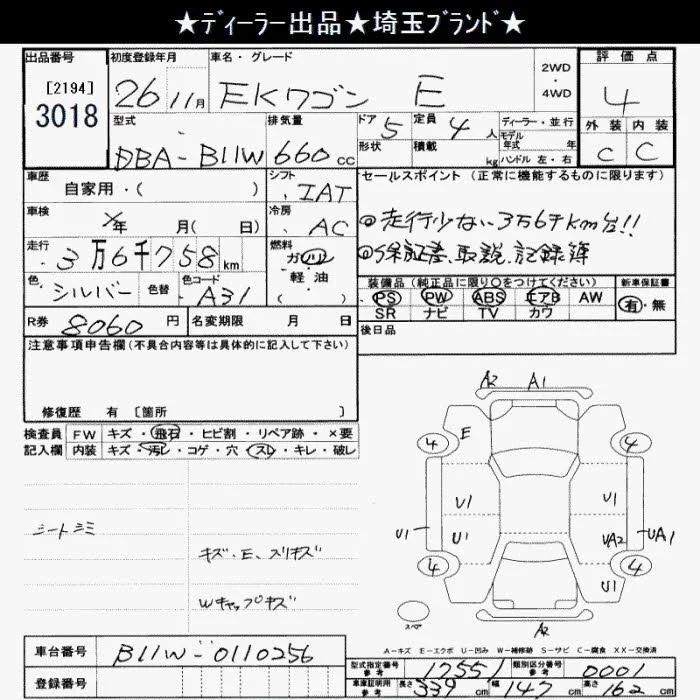 ★ディーラー出品★埼玉ブランド★
出品番号
[2194]
3018
初度登録年月
26 11月
車名・グレード
EKワゴン E
2WD
・
4WD
評価点
4
外装 内装
C C
型式
DBA-B11W
排気量
660cc
ドア 5
形状
定員 4人
積載 kg
ディーラー・並行
モデル年式 年
ハンドル 左・右
車歴
自家用・( )
シフト
IAT
車検
年 月( 日)
冷房
AC
走行
3万6千758km
燃料
ガソリン
・
軽油
色
シルバー
色替
色コード
A31
セールスポイント(正常に機能するものに限ります)
◎走行少ない3万6千km台!!
◎保証書、取説、記録簿
装備品(純正品に限り○をつけてください)
PS PW ABS エアB AW
SR ナビ TV カワ
新車保証書
有・無
R券 8060円
名変期限 月 日
後日品
注意事項申告欄(不具合内容等は具体的に記入して下さい)
修復歴 有 [箇所 ]
検査員
記入欄
FW キズ・飛石・ヒビ割・リペア跡・×要
内装 キズ・汚レ・コゲ・穴・スレ・キレ・破レ
シートシミ
キズ・E、スリキズ
Wキャップキズ
A2 A1
4 E 4
U1 U1
U1 U1 UA2 UA1
4 U1 4
スペア
A2
A-キズ E-エクボ U-凹み W-補修跡 S-サビ C-腐食 XX-交換済
車台番号
B11W-0110256
登録番号
型式指定番号
参考
17551
類別区分番号
参考
0001
車庫証明用
参考
長さ 339cm 幅 147cm 高さ 162cm